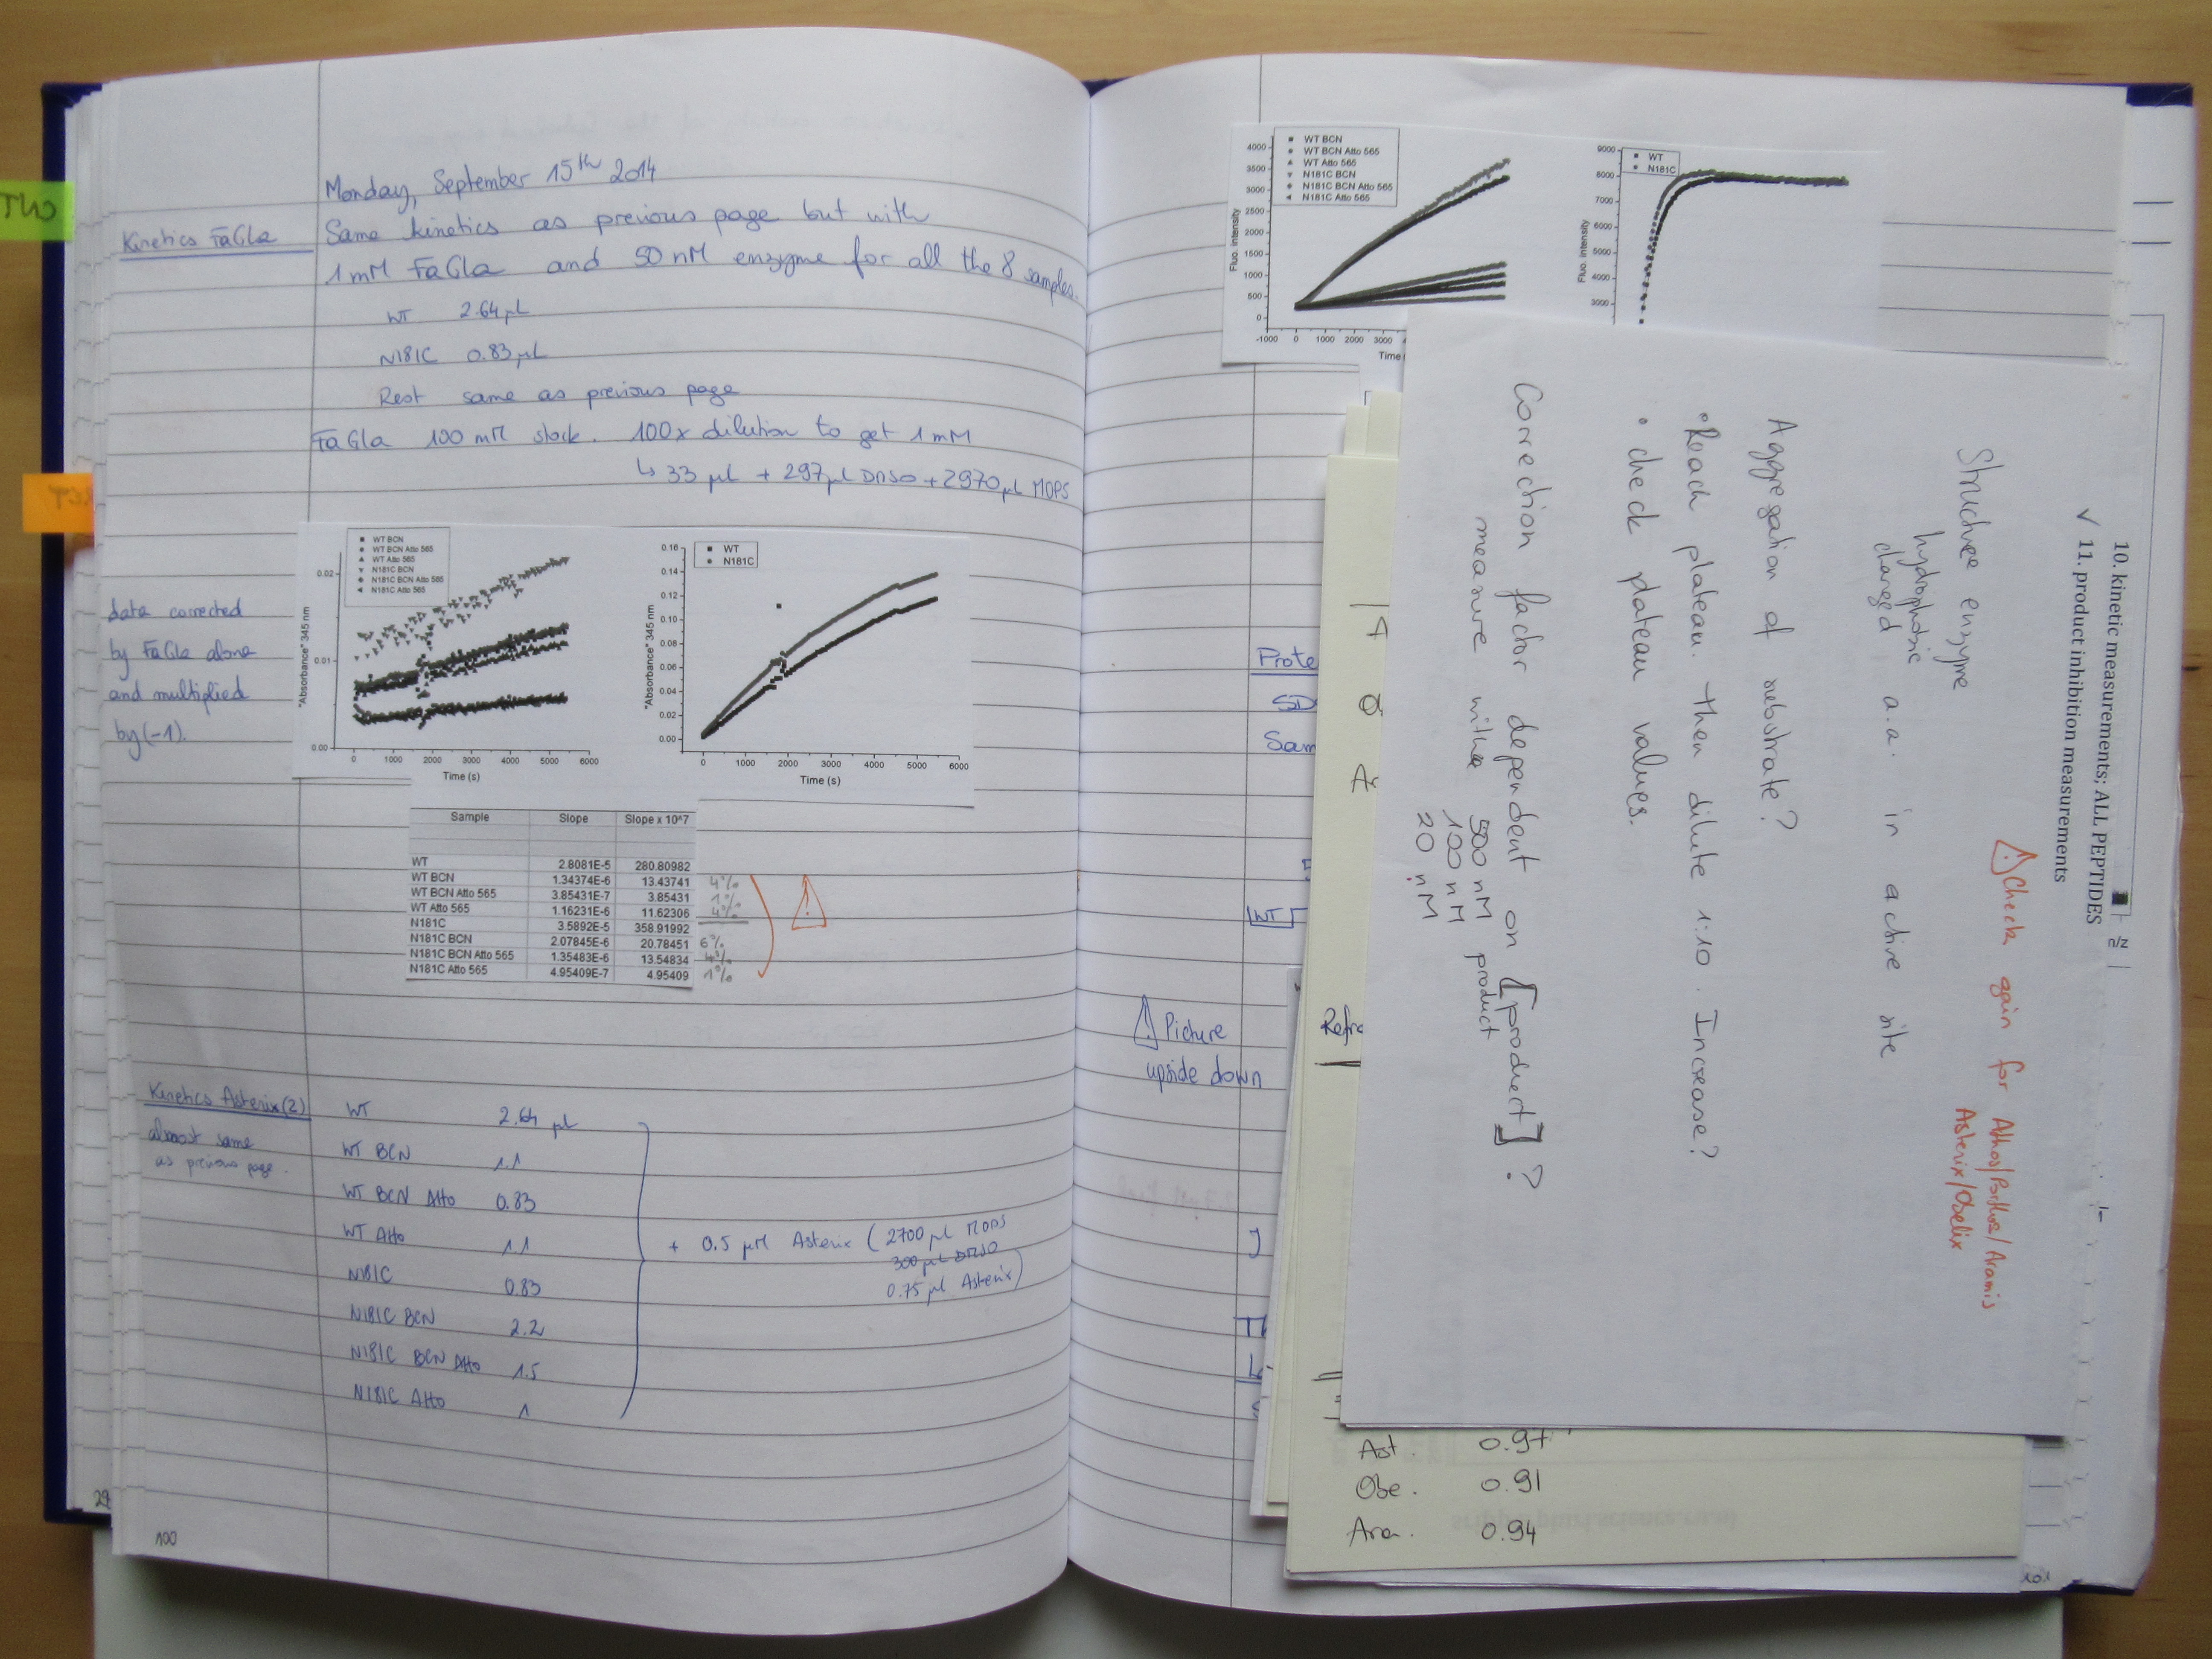 Monday, September 15th 2014
Kinetics FaGla
Same kinetics as previous page but with
1 mM FaGla and 50 nM enzyme for all the 8 samples.
WT 2.64 µL
N181C 0.83 µL
Rest same as previous page
FaGla 100 mM stock. 100x dilution to get 1 mM
↳ 33 µL + 297 µL DMSO + 2970 µL MOPS
data corrected
by FaGla alone
and multiplied
by (-1).
WT BCN
WT BCN Atto 565
WT Atto 565
N181C BCN
N181C BCN Atto 565
N181C Atto 565
"Absorbance" 345 nm
0.02
0.01
0.00
0 1000 2000 3000 4000 5000 6000
Time (s)
WT
N181C
"Absorbance" 345 nm
0.16
0.14
0.12
0.10
0.08
0.06
0.04
0.02
0.00
0 1000 2000 3000 4000 5000 6000
Time (s)
Sample Slope Slope x 10^7
WT 2.8081E-5 280.80982
WT BCN 1.34374E-6 13.43741 4%
WT BCN Atto 565 3.85431E-7 3.85431 1%
WT Atto 565 1.16231E-6 11.62306 4%
N181C 3.5892E-5 358.91992
N181C BCN 2.07845E-6 20.78451 6%
N181C BCN Atto 565 1.35483E-6 13.54834 4%
N181C Atto 565 4.95409E-7 4.95409 1%
!
Kinetics Asterix (2)
almost same
as previous page.
WT 2.64 µL
WT BCN 1.1
WT BCN Atto 0.83
WT Atto 1.1
N181C 0.83
N181C BCN 2.2
N181C BCN Atto 1.5
N181C Atto 1
+ 0.5 µM Asterix (2700 µL MOPS
300 µL DMSO
0.75 µL Asterix)
100
29
WT BCN
WT BCN Atto 565
WT Atto 565
N181C BCN
N181C BCN Atto 565
N181C Atto 565
Fluo. intensity
4000
3500
3000
2500
2000
1500
1000
500
0
-1000 0 1000 2000 3000
Time
WT
N181C
Fluo. intensity
9000
8000
7000
6000
5000
4000
3000
10. kinetic measurements; ALL PEPTIDES
✓ 11. product inhibition measurements
n/z
⚠ Check again for Athos/Porthos/Aramis
Asterix/Obelix
Structure enzyme
hydrophobic
charged a.a. in active site
Aggregation of substrate?
• Reach plateau. then dilute 1:10. Increase?
• check plateau values.
Correction factor dependent on [product]?
measure with 500 nM product
100 nM
20 nM
Prote
SD
Sam
WT
⚠ Picture
upside down
Refra
Ast. 0.97
Obe. 0.91
Ara. 0.94
101